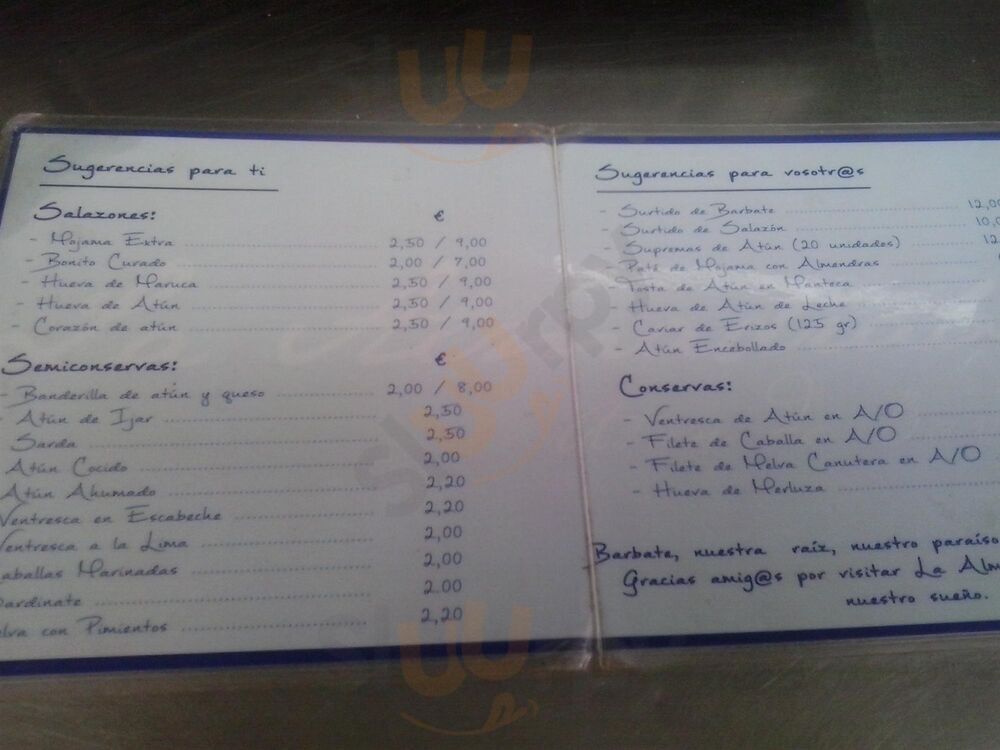 Sugerencias para ti
Salazones: €
- Mojama Extra 2,50 / 9,00
- Bonito Curado 2,00 / 7,00
- Hueva de Maruca 2,50 / 9,00
- Hueva de Atún 2,50 / 9,00
- Corazón de atún 2,50 / 9,00
Semiconservas: €
- Banderilla de atún y queso 2,00 / 8,00
- Atún de Ijar 2,50
Sarda 2,50
Atún Cocido 2,00
Atún Ahumado 2,20
Ventresca en Escabeche 2,20
Ventresca a la Lima 2,00
aballas Marinadas 2,00
ardinate 2.00
elva con Pimientos 2,20
Sugerencias para vosotr@s
- Surtido de Barbate 12,00
- Surtido de Salazón 10,0
- Supremas de Atún (20 unidades) 12
- Paté de Mojama con Almendras
- Tosta de Atún en Manteca
- Hueva de Atún de Leche
- Caviar de Erizos (125 gr)
- Atún Encebollado
Conservas:
- Ventresca de Atún en A/O
- Filete de Caballa en A/O
- Filete de Melva Canutera en A/O
- Hueva de Merluza
Barbate, nuestra raíz, nuestro paraíso
Gracias amig@s por visitar La Alm
nuestro sueño.